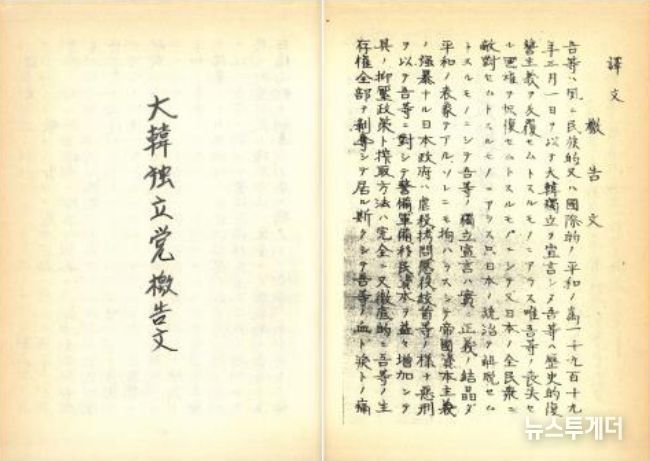 大韓独立党檄告文
譯文
檄告文
吾等ハ夙ニ民族的又ハ國際的ノ平和ノ為一千九百十九
年三月一日ヲ以テ大韓獨立ヲ宣言シ吾等ハ歴史的復
讐主義ヲ反覆セムトスルモノニアラス唯吾等ノ喪失セ
ル國雄ヲ恢復セムトスルモノニシテ又日本ノ全民衆ニ
敵對セムトスルモノニアラス只日本ノ統治ヲ解脱セム
トスルモノニシテ吾等ノ獨立宣言ハ實ニ正義ノ結晶ダ
平和ノ表象テアル、ソレニモ拘ハラスシテ帝國資本主義
ノ強暴ナル日本政府ハ虐殺拷問懲役絞首等ノ様々悪刑
ヲ以テ吾等ニ對シテ警備軍備移民資本ヲ益々増加シテ
其ノ抑壓政策ト搾取方法ハ完全ニ又徹底的ニ吾等ノ生
存権全部ヲ剥奪シテ居ル斯クシテ吾等ノ血ト涙トノ痛
뉴스투게더